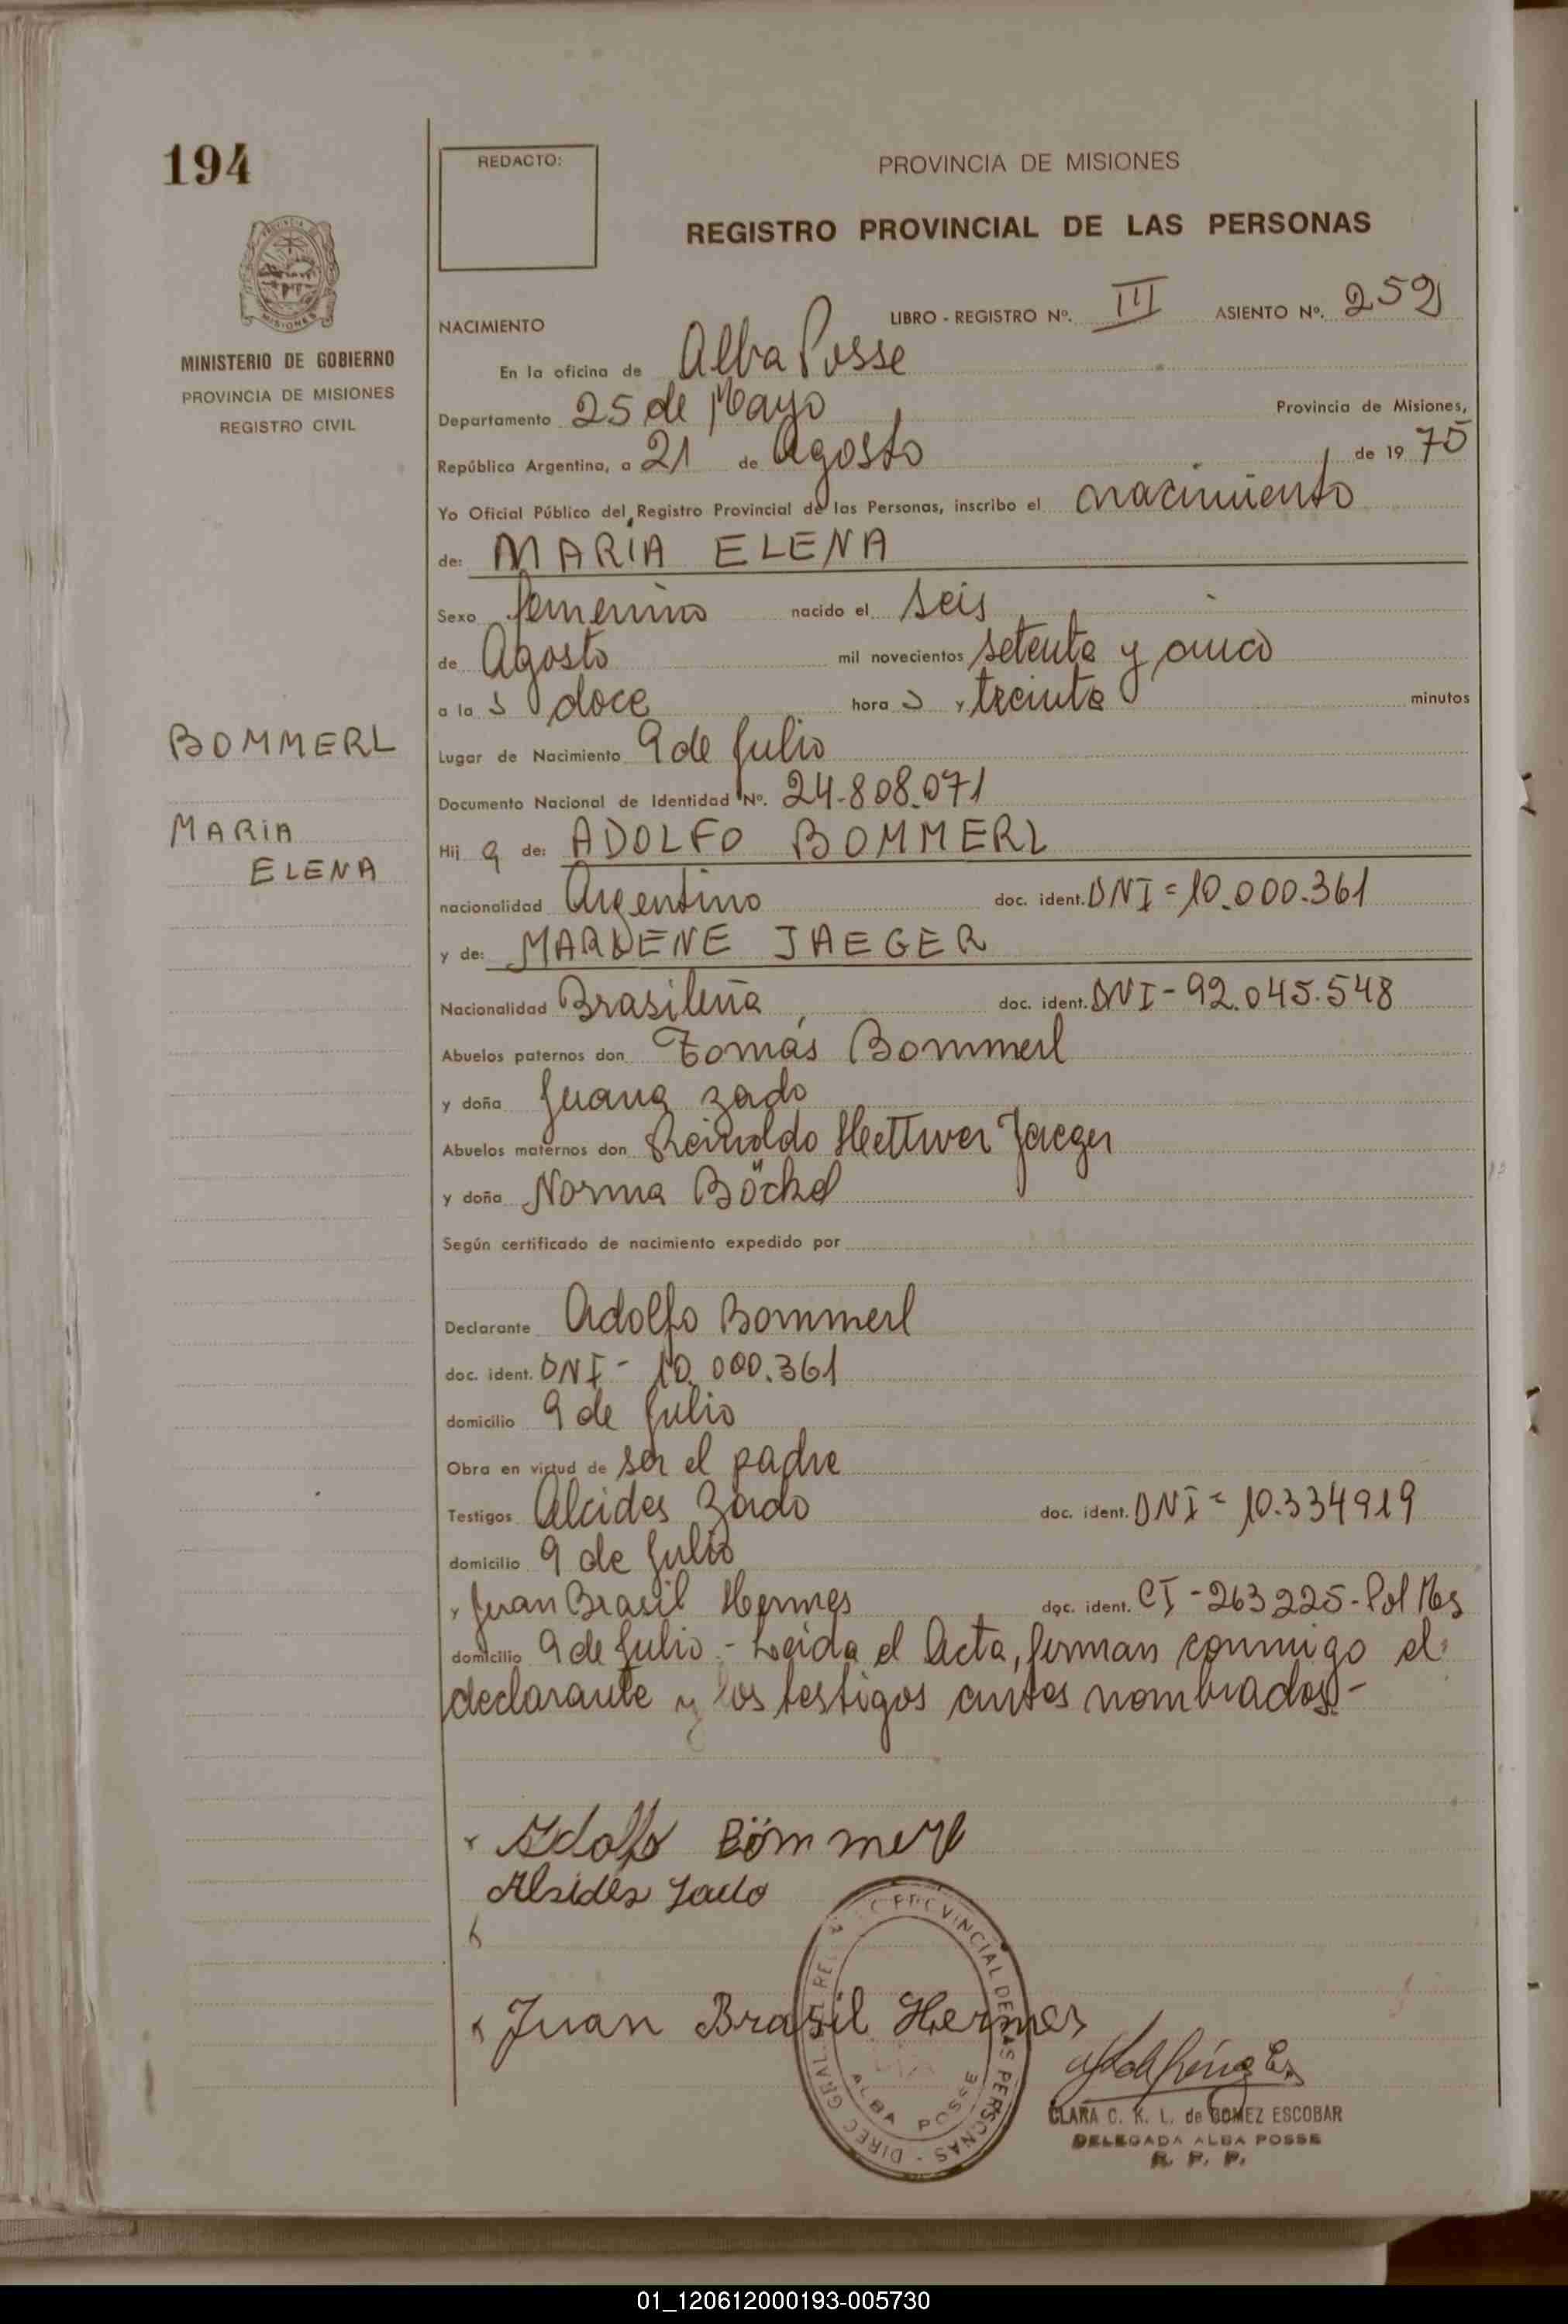 194
REDACTO:
PROVINCIA DE MISIONES
REGISTRO PROVINCIAL DE LAS PERSONAS
MISIONES
MINISTERIO DE GOBIERNO
PROVINCIA DE MISIONES
REGISTRO CIVIL
NACIMIENTO LIBRO - REGISTRO Nº. III ASIENTO Nº. 252
En la oficina de Alba Posse
Departamento 25 de Mayo Provincia de Misiones,
República Argentina, a 21 de Agosto de 19 75
Yo Oficial Público del Registro Provincial de las Personas, inscribo el nacimiento
de: MARIA ELENA
Sexo femenino nacido el seis
de Agosto mil novecientos setenta y cinco
a la s doce hora s y treinta minutos
BOMMERL
Lugar de Nacimiento 9 de Julio
Documento Nacional de Identidad Nº. 24-808.071
MARIA
ELENA
Hij a de: ADOLFO BOMMERL
nacionalidad Argentino doc. ident. DNI = 10.000.361
y de: MARLENE JAEGER
Nacionalidad Brasileña doc. ident. DNI - 92.045.548
Abuelos paternos don Tomás Bommerl
y doña Juana Zado
Abuelos maternos don Reinoldo Hettwer Jaeger
y doña Norma Böckel
Según certificado de nacimiento expedido por
Declarante Adolfo Bommerl
doc. ident. DNI - 10.000.361
domicilio 9 de Julio
Obra en virtud de ser el padre
Testigos Alcides Zado doc. ident. DNI = 10.334919
domicilio 9 de Julio
y Juan Brasil Hermes doc. ident. CI - 263225 - Pol Mes
domicilio 9 de Julio - Leida el Acta, firman conmigo el
declarante y los testigos antes nombrados -
Adolfo Bömmerl
Alsides Zado
Juan Brasil Hermes
DIREC GRAL REG PROVINCIAL DE LAS PERSONAS
ALBA POSSE
CLARA C. K. L. de GOMEZ ESCOBAR
DELEGADA ALBA POSSE
R. P. P.
01_120612000193-005730